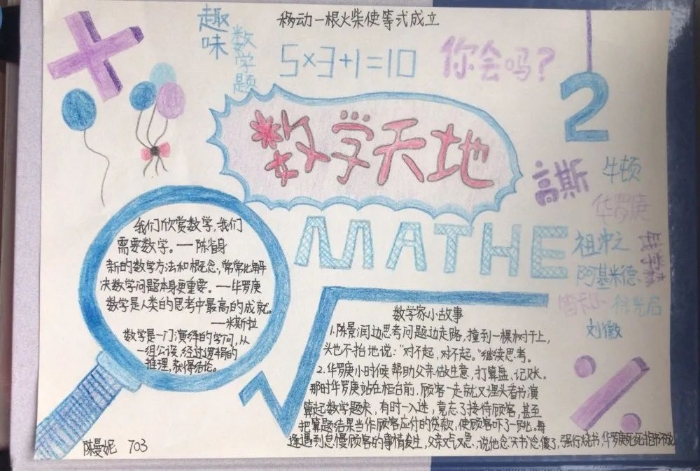 移动一根火柴使等式成立
趣味
数学题
5×3+1=10
你会吗?
2
数学天地
高斯
牛顿
华罗庚
祖冲之
阿基米德
刘徽
MATHE
我们欣赏数学,我们
需要数学。——陈省身
新的数学方法和概念,常常比解
决数学问题本身更重要。——华罗庚
数学是人类的思考中最高的成就。
——米斯拉
数学是一门演绎的学问,从
一组公设,经过逻辑的
推理,获得结论。
数学家小故事
1.陈景润边思考问题边走路,撞到一棵树干上,
头也不抬地说:"对不起,对不起。"继续思考。
2.华罗庚小时候帮助父亲做生意,打算盘,记账。
那时华罗庚站在柜台前,顾客一走就又埋头看书演
算起数学题来,有时一入迷,竟忘了接待顾客,甚至
把算题结果当作顾客应付的货款,使顾客吓了一跳。每
逢遇到怠慢顾客的事情发生,父亲又气又急,说他念书念傻了,强行烧书,华罗庚死死抱书不放
陈曼妮 703